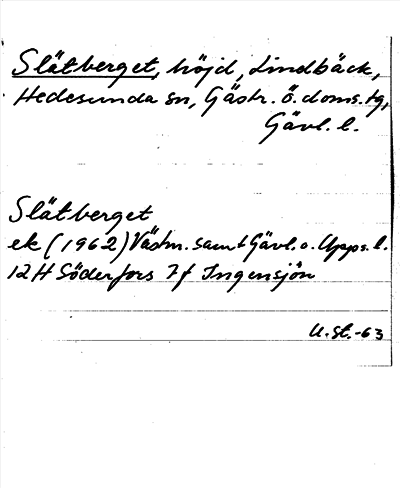 Slätberget, höjd, Lindbäck,
Hedesunda sn, Gästr. ö. doms. tg,
Gävl. l.
Slätberget
ek (1962) Västm. samt Gävl. o. Upps. l.
12H Söderfors 7f Ingensjön
U. St. -63